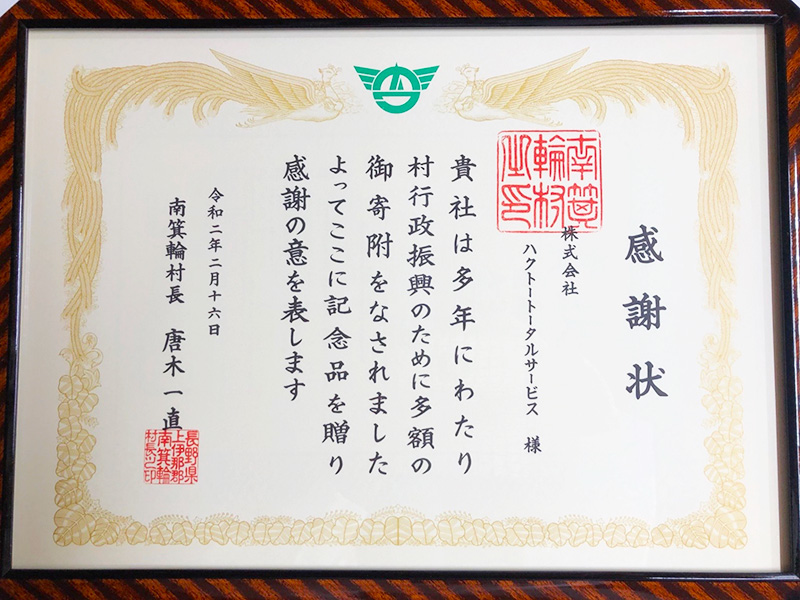 感謝状
株式会社
ハクトートータルサービス 様
貴社は多年にわたり
村行政振興のために多額の
御寄附をなされました
よってここに記念品を贈り
感謝の意を表します
令和二年二月十六日
南箕輪村長 唐木一直
南箕
輪村
之印
長野県
上伊那郡
南箕輪
村長之印